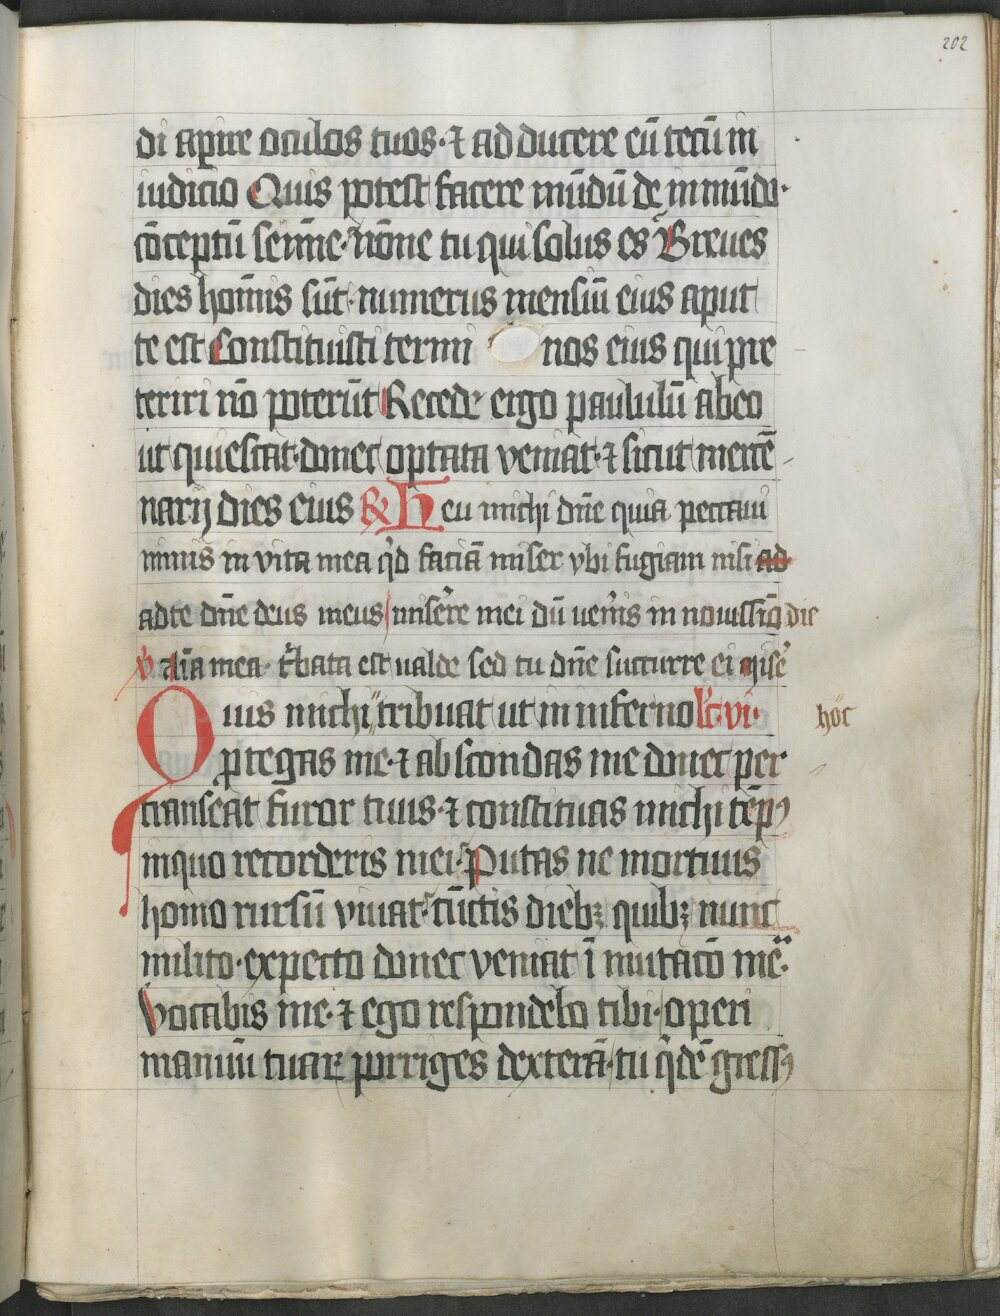 202
di aꝑire oculos tuos· ⁊ ad ducere eū tecū in
iudicio Quis potest facere mūdū de inmūdo·
cōceptū semīne· nōne tu qui solus es Breues
dies homīs sūt· numerus mensiū eius aput
te est Constituisti termi nos eius qui pre
teriri nō poterūt Recede ergo paululū ab eo
ut quiescat· donec optata veniat· ⁊ sicut mercē
narij dies eius ℟ Heu michi dn̄e quia peccaui
nimis in vita mea qd faciā miser vbi fugiam nisi ad
ad te dn̄e deus meus miserere mei dū uen̄is in nouissīo die
℣ Aīa mea· t͛bata est ualde sed tu dn̄e succurre ei mise͛
Quis michi tribuat ut in inferno lc̄· vi·
hoc
ꝓtegas me· ⁊ abscondas me donec per
transeat furor tuus· ⁊ constituas michi tēpꝰ
inquo recorderis mei· Putas ne mortuus
homo rursū viuat· cūctis diebꝫ quibꝫ nunc
milito· expecto donec veniat ī mutacō mea·
Vocabis me· ⁊ ego respondebo tibi· operi
manuū tuaꝝ porriges dexterā· tu qͥdē gressꝰ